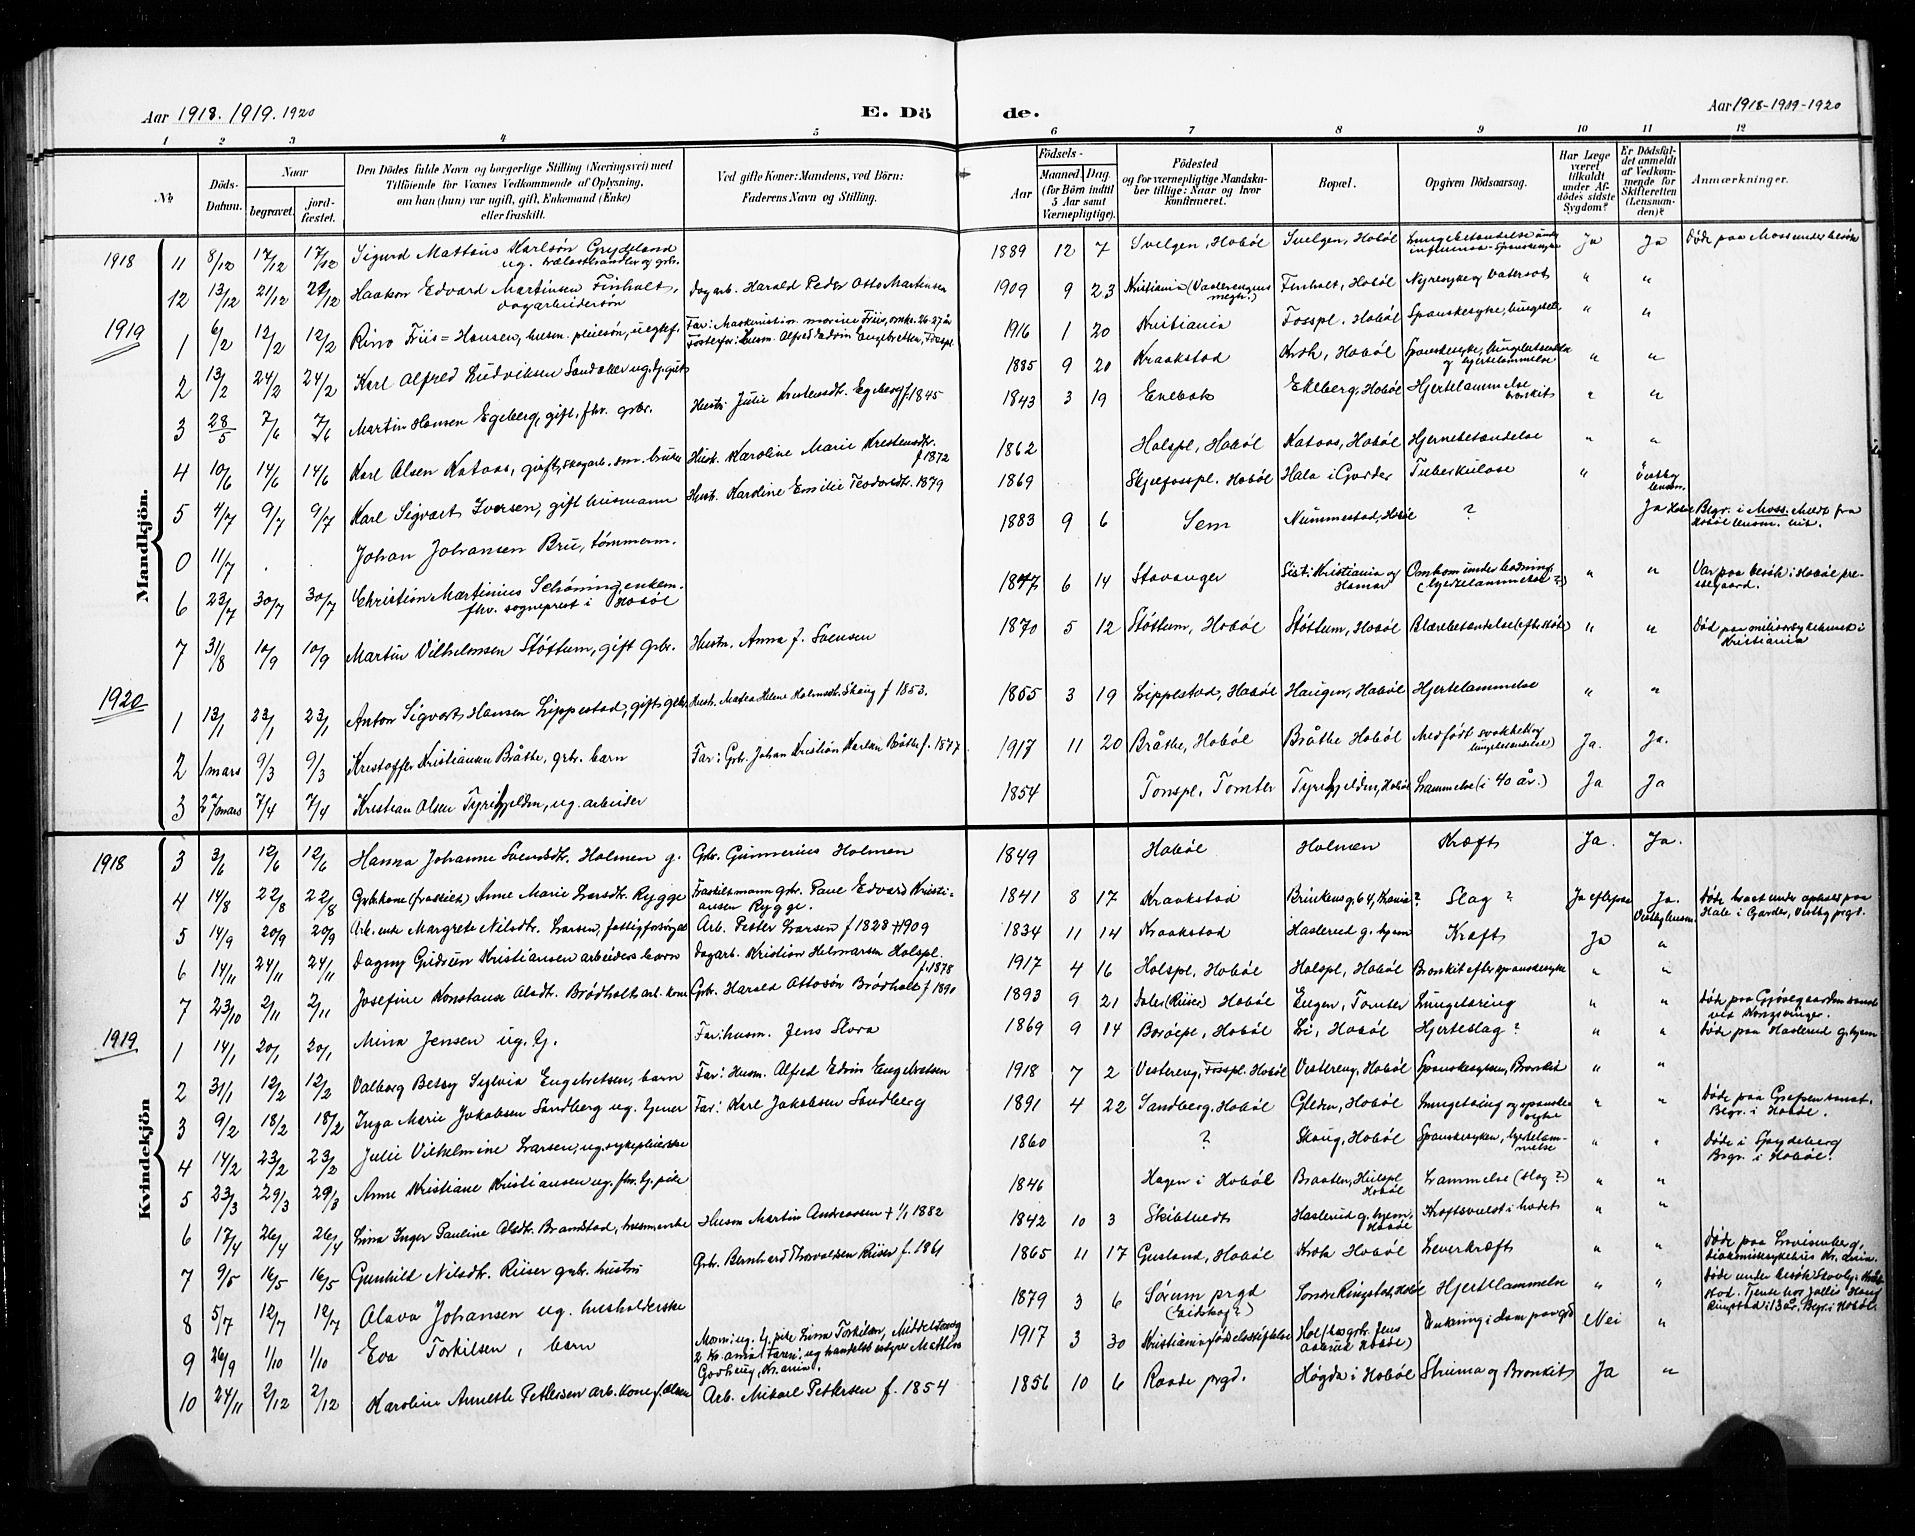 Aar 1918. 1919. 1920
E. Dö
de.
Aar 1918-1919-1920
1 2 3 4 5 6 7 8 9 10 11 12
No
Döds-Datum.
Naar
begravet.
jordfæstet.
Den Dödes fulde Navn og borgerlige Stilling (Næringsvei) med
Tilföiende for Voxnes Vedkommende af Oplysning,
om han (hun) var ugift, gift, Enkemand (Enke)
eller fraskilt.
Ved gifte Koner: Mandens, ved Börn:
Faderens Navn og Stilling.
Födsels-
Aar
Maaned. Dag.
(for Börn indtil
5 Aar samt
Værnepligtige).
Födested
og for værnepligtige Mandska-
ber tillige: Naar og hvor
konfirmeret.
Bopæl.
Opgiven Dödsaarsag.
Har Læge
været
tilkaldt
under Af-
dödes sidste
Sygdom?
Er Dödsfal-
det anmeldt
af Vedkom-
mende for
Skifteretten
(Lensman-
den)?
Anmærkninger.
Mandkjön.
1918 11 8/12 17/12 17/12 Sigurd Mattæus Karlsön Grydeland ug. trælasthandler og grbr. 1889 12 7 Svelgen, Hobøl Svelgen, Hobøl Lungebetændelse under influensa-Spanskesyke Ja Ja Døde paa Moss under besøk
12 13/12 21/12 21/12 Haakon Edvard Martinsen Finholt, dagarbeidersøn Dagarb. Harald Peder Otto Martinsen 1909 9 23 Kristiania (Vaalerengens megh.) Finholt, Hobøl Nyresyke og Vatersot " "
1919 1 6/2 12/2 12/2 Rino Friis=Hansen, husm. pleiesøn, uegtef. Far: Maskinist i marine Friis, omkr. 26-27 år Fosterfar: Husm. Alfred Edvin Engebretsen, Fosspl 1916 1 20 Kristiania Fosspl. Hobøl Spanskesyke, lungebet. " "
2 13/2 24/2 24/2 Karl Alfred Ludviksen Sandaker ug. tj.gut 1885 9 20 Kraakstad Kroh, Hobøl Spanskesyke, lungebetændelse og hjertelammelse " "
3 28/5 7/6 7/6 Martin Hansen Egeberg, gift, fhv. grbr. Hustr. Julie Kristensdtr. Egeberg f. 1845 1843 3 19 Enebak Ekeberg, Hobøl Hjertelammelse bronkit " "
4 10/6 14/6 14/6 Karl Olsen Kataas, gift, skogarb. sm. bruker Hustr. Karoline Marie Kristensdtr. f 1872 1862 Holspl, Hobøl Kataas, Hobøl Hjernebetændelse " "
5 4/7 9/7 9/7 Karl Sigvart Iversen, gift husmann Hustr. Karoline Emilie Teodorsdtr. 1879 1869 Skjelfosspl. Hobøl Hala i Garder Tuberkulose " Vestby lensm.
0 11/7 . . Johan Johansen Bru, tømmerm. 1883 9 6 Sem Nummestad, Hobøl ? Ja Begr. i Moss. Meldt fra Hobøl lensm. vis.
6 23/7 30/7 30/7 Christian Martinius Schöning, enkem. fhv. sogneprest i Hobøl 1847 6 14 Stavanger Sist: Kristiania og Hamar Omkom under badning (hjertelammelse?) " " Var paa besøk i Hobøl prestegaard.
7 31/8 10/9 10/9 Martin Vilhelmsen Støttum, gift Grbr. Hustr. Anna f. Svensen 1870 5 12 Støttum, Hobøl Støttum, Hobøl " " Død paa militærsykehuset i Kristiania
1920 1 13/1 23/1 23/1 Anton Sigvart Hansen Lippestad, gift gbr. Hustr. Matea Helene Holmsdtr. Skaug f 1853. 1855 3 19 Lippestad, Hobøl Haugen, Hobøl Hjertelammelse " "
2 1 mars 9/3 9/3 Kristoffer Kristiansen Bråthe, grbr. barn Far: Grb. Johan Kristian Karlsen Bråthe f. 1877 1917 11 20 Bråthe, Hobøl Bråthe Hobøl Medfødt svakhet (og lungebetændelse) Ja. Ja.
3 27 mars 7/4 7/4 Kristian Olsen Tyrihjelden, ug. arbeider 1854 Tonspl, Tomter Tyrihjelden, Hobøl Lammelse (i 40 år.) Ja Ja
Kvindekjön
1918 3 3/6 12/6 12/6 Hanna Johanne Svendsdtr. Holmen g. Grbr. Gunnerius Holmen 1849 Hobøl Holmen Kræft Ja. Ja.
4 14/8 22/8 22/8 Grbr.kone (fraskilt) Anne Marie Larsdtr. Rygge Fraskiltmann grbr. Paul Edvard Kristiansen Rygge. 1841 8 17 Kraakstad Brinkens g. 64, Krania? Slag ? Ja Vestby lensm. Døde brat under ophold paa Hale i Garder, Vestby prgd.
5 14/9 20/9 20/9 Arb. enke Margrete Nilsdtr. Larsen, fattigforsørget Arb. Petter Larsen f 1828 +1909 1834 11 14 Kraakstad Haslerud g. hjem Kræft Ja "
6 14/11 24/11 24/11 Dagny Gudrun Kristiansen arbeiders barn Dagarb. Kristian Helmersen Holspl. f. 1878 1917 4 16 Holspl, Hobøl Holspl, Hobøl Bronkit efter spanskesyke " "
7 23/10 2/11 2/11 Josefine Konstanse Olsdtr. Brødholt arb. kone Grbr. Harald Ottosøn Brødholt f 1890 1893 9 21 Daler (Riiser) Hobøl Engen, Tomter Lungetæring " " Døde paa Gjøsegaarden sanat. ved Kongsvinger.
1919 1 14/1 20/1 20/1 Mina Jensen ug. tj. Far: husm. Jens Slora 1869 9 14 Boråspl, Hobøl Li, Hobøl Hjerteslag ? " " Døde paa Haslerud g. hjem
2 31/1 12/2 12/2 Valborg Betsy Sylvia Engebretsen, barn Far: Husm. Alfred Edvin Engebretsen 1918 7 2 Vestereng, Fosspl. Hobøl Vestereng, Hobøl Spanskesyken, Bronkit " "
3 9/2 18/2 18/2 Inga Marie Jakobsen Sandberg ug. tjener Far: Karl Jakobsen Sandberg 1891 4 22 Sandberg, Hobøl Gleden, Hobøl Lungetæring og spanskesyke " " Døde paa Grefsen sanat. Begr. i Hobøl.
4 14/2 23/2 23/2 Julie Vilhelmine Larsen, ug. sykepleierske 1860 ? Skaug, Hobøl Spanskesyken, hjertelammelse " " Døde i Spydeberg Begr. i Hobøl.
5 23/3 29/3 29/3 Anne Kristiane Kristiansen ug. fhv. tj. pike 1846 Hagen i Hobøl Braaten, Hobøl Lammelse (slag ?) " "
6 17/4 26/4 26/4 Lina Inger Pauline Olsdtr. Brandstad, husm.enke Husm Martin Andreassen + 1/1 1882 1842 10 3 Skibtvedt Haslerud g. hjem, Hobøl Kræftsvulst i hodet " "
7 9/5 16/5 16/5 Gunhild Nilsdtr. Riiser grbr. hustru Grbr. Bernhard Thorvaldsen Riiser f. 1861 1865 11 17 Gusland, Hobøl Kroh Hobøl Leverkræft " " Døde paa Lovisenberg, diakonissesykehus Kr.ania.
8 5/7 12/7 12/7 Olava Johansen ug. husholderske 1879 3 6 Sørum prgd (Eidskog?) Søndre Ringstad, Hobøl Hjertelammelse " " Døde under besøk Ringstad i 13 år. Begr. i Hobøl.
9 26/9 1/10 1/10 Eva Torkilsen, barn Mor: ug. tj. pike Linna Torkilsen, Middelthunsg 2 Kr.ania Faren: ug handelsbestyrer Godhaug, Kr.ania. 1917 3 30 Kristiania fødselsstiftelse Hol (hos grbr. Jens Hobøl) Drukning i dam paa gd Nei "
10 24/11 2/12 2/12 Karoline Annette Pettersen arb. kone f. Olsen Arb. Mikael Pettersen f. 1854 1856 10 6 Raade prgd. Høgda i Hobøl Struma og Bronkit Ja "